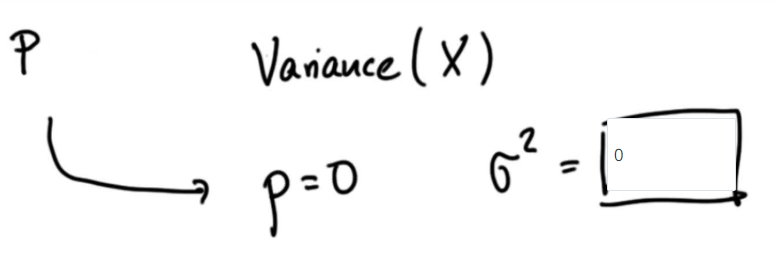 P Variance (X)
p=0 σ² = 0